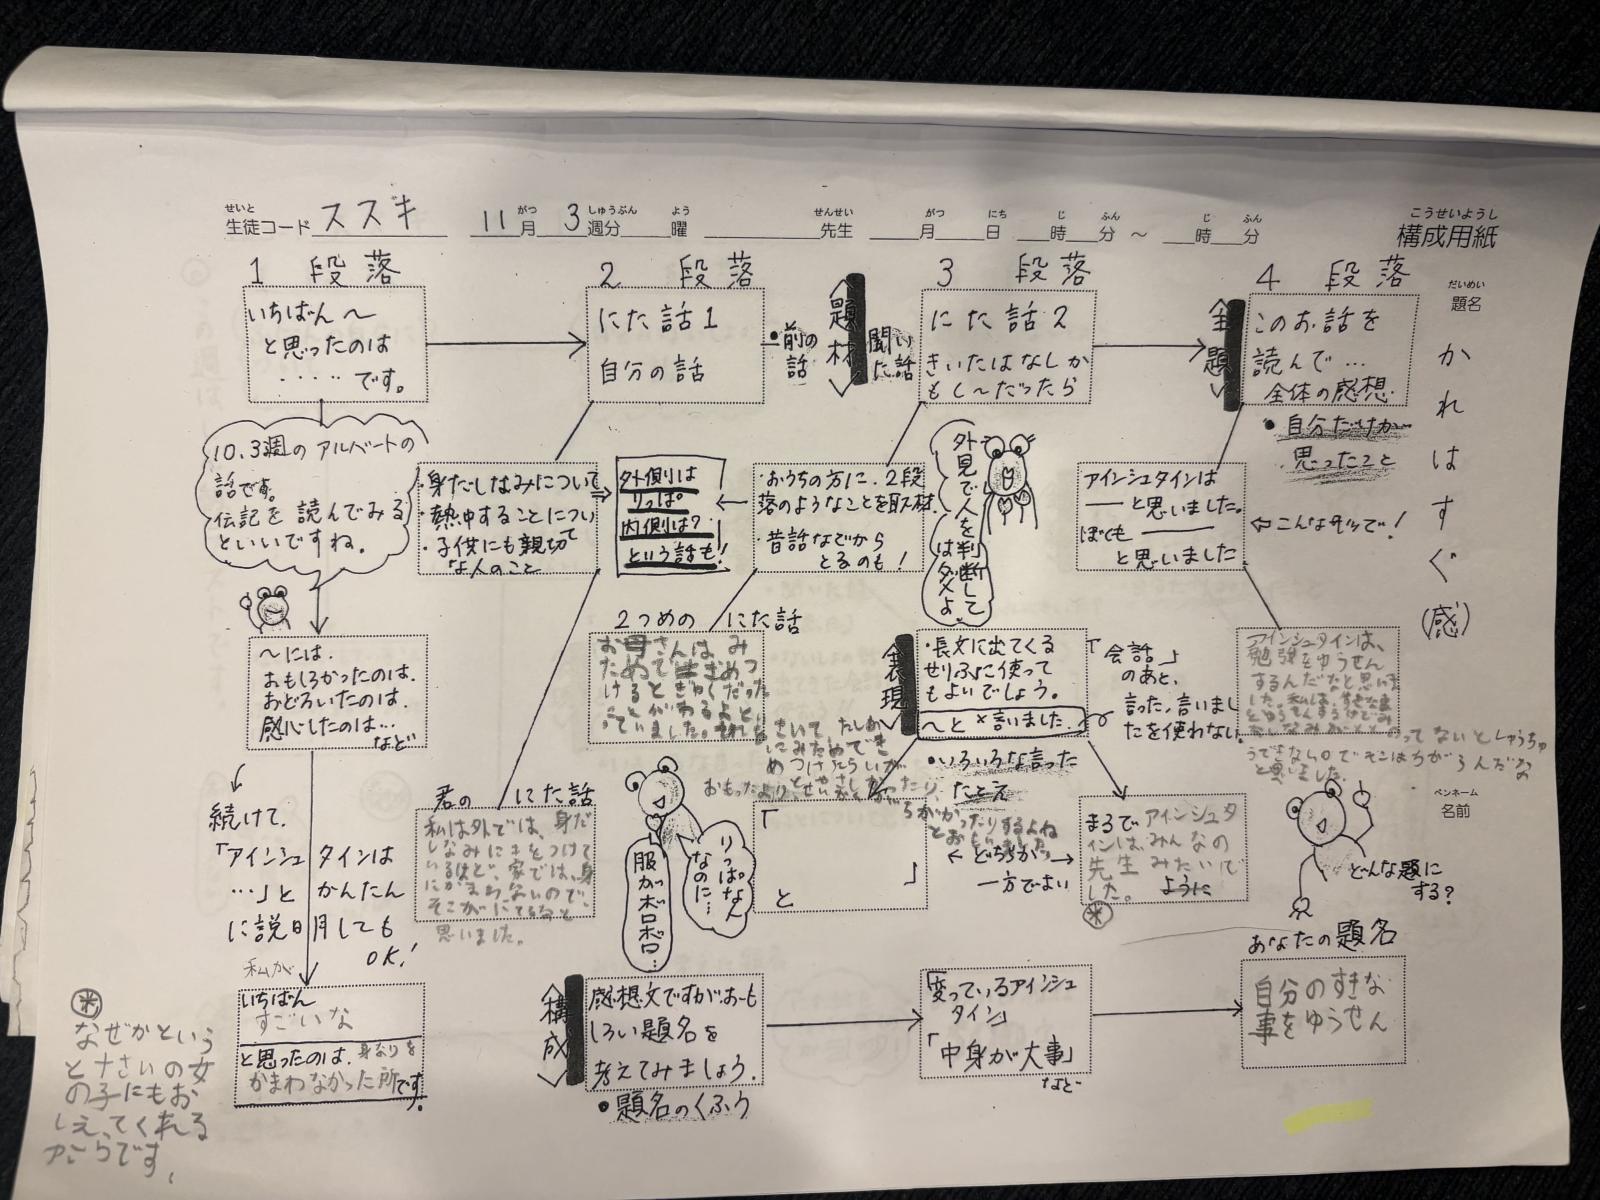 せいと
生徒コード ススキ
11月 3週分 曜
がつ しゅうぶん よう
先生
せんせい
月 日 時 分 ～ 時 分
がつ にち じ ふん じ ふん
こうせいようし
構成用紙
だいめい
題名
かれはすぐ(感)
1 段落
いちばん～
と思ったのは
・・・・・です。
10.3週のアルバートの
話です。
伝記を読んでみる
といいですね。
～には.
おもしろかったのは.
おどろいたのは.
感心したのは…
など
続けて.
「アインシュタインは
…」とかんたん
に説明しても
OK!
私が
いちばん
すごいな
と思ったのは、身なりを
かまわなかった所です.
※
なぜかという
と十さいの女
の子にもお
しえてくれる
からです。
2 段落
にた話1
自分の話
・前の
話
・身だしなみについて
・熱中することについて
・子供にも親切
な人のこと
外側は
りっぱ
内側は?
という話も!
君の にた話
私は外では、身だ
しなみにきをつけて
いるけど、家では、身
にかまわないので、
そこがにてるなと
思いました。
〈題材〉
聞いた話
3 段落
にた話2
きいたはなしか
もし～だったら
・おうちの方に、2段
落のようなことを取材.
・昔話などから
とるのも!
外見で人を判断して
はダメよ
2つめの にた話
お母さんは、み
ためできめつ
けると
りっぱな人
なのに…
服がボロボロ…
〈表現〉
・長文に出てくる
せりふに使って
もよいでしょう。
～と×言いました.
「会話」
のあと、
言った,言いまし
たを使わない.
・いろいろな言った
たとえ
「
」
と
← どちらか →
一方でよい
まるでアインシュタ
インは、みんなの
先生みたいで
した。
ように
※
〈主題〉
4 段落
このお話を
読んで…
全体の感想.
・自分だけが
思ったこと
アインシュタインは
――と思いました。
ぼくも――
と思いました
⇐こんなカンジで!
アインシュタインは、
勉強をゆうせん
するんだなと思いま
した。私は、
と思いました。
ペンネーム
名前
どんな題に
する?
〈構成〉
感想文ですがおも
しろい題名を
考えてみましょう.
・題名のくふう
「変っているアインシュ
タイン」
「中身が大事」
など
あなたの題名
自分のすきな
事をゆうせん